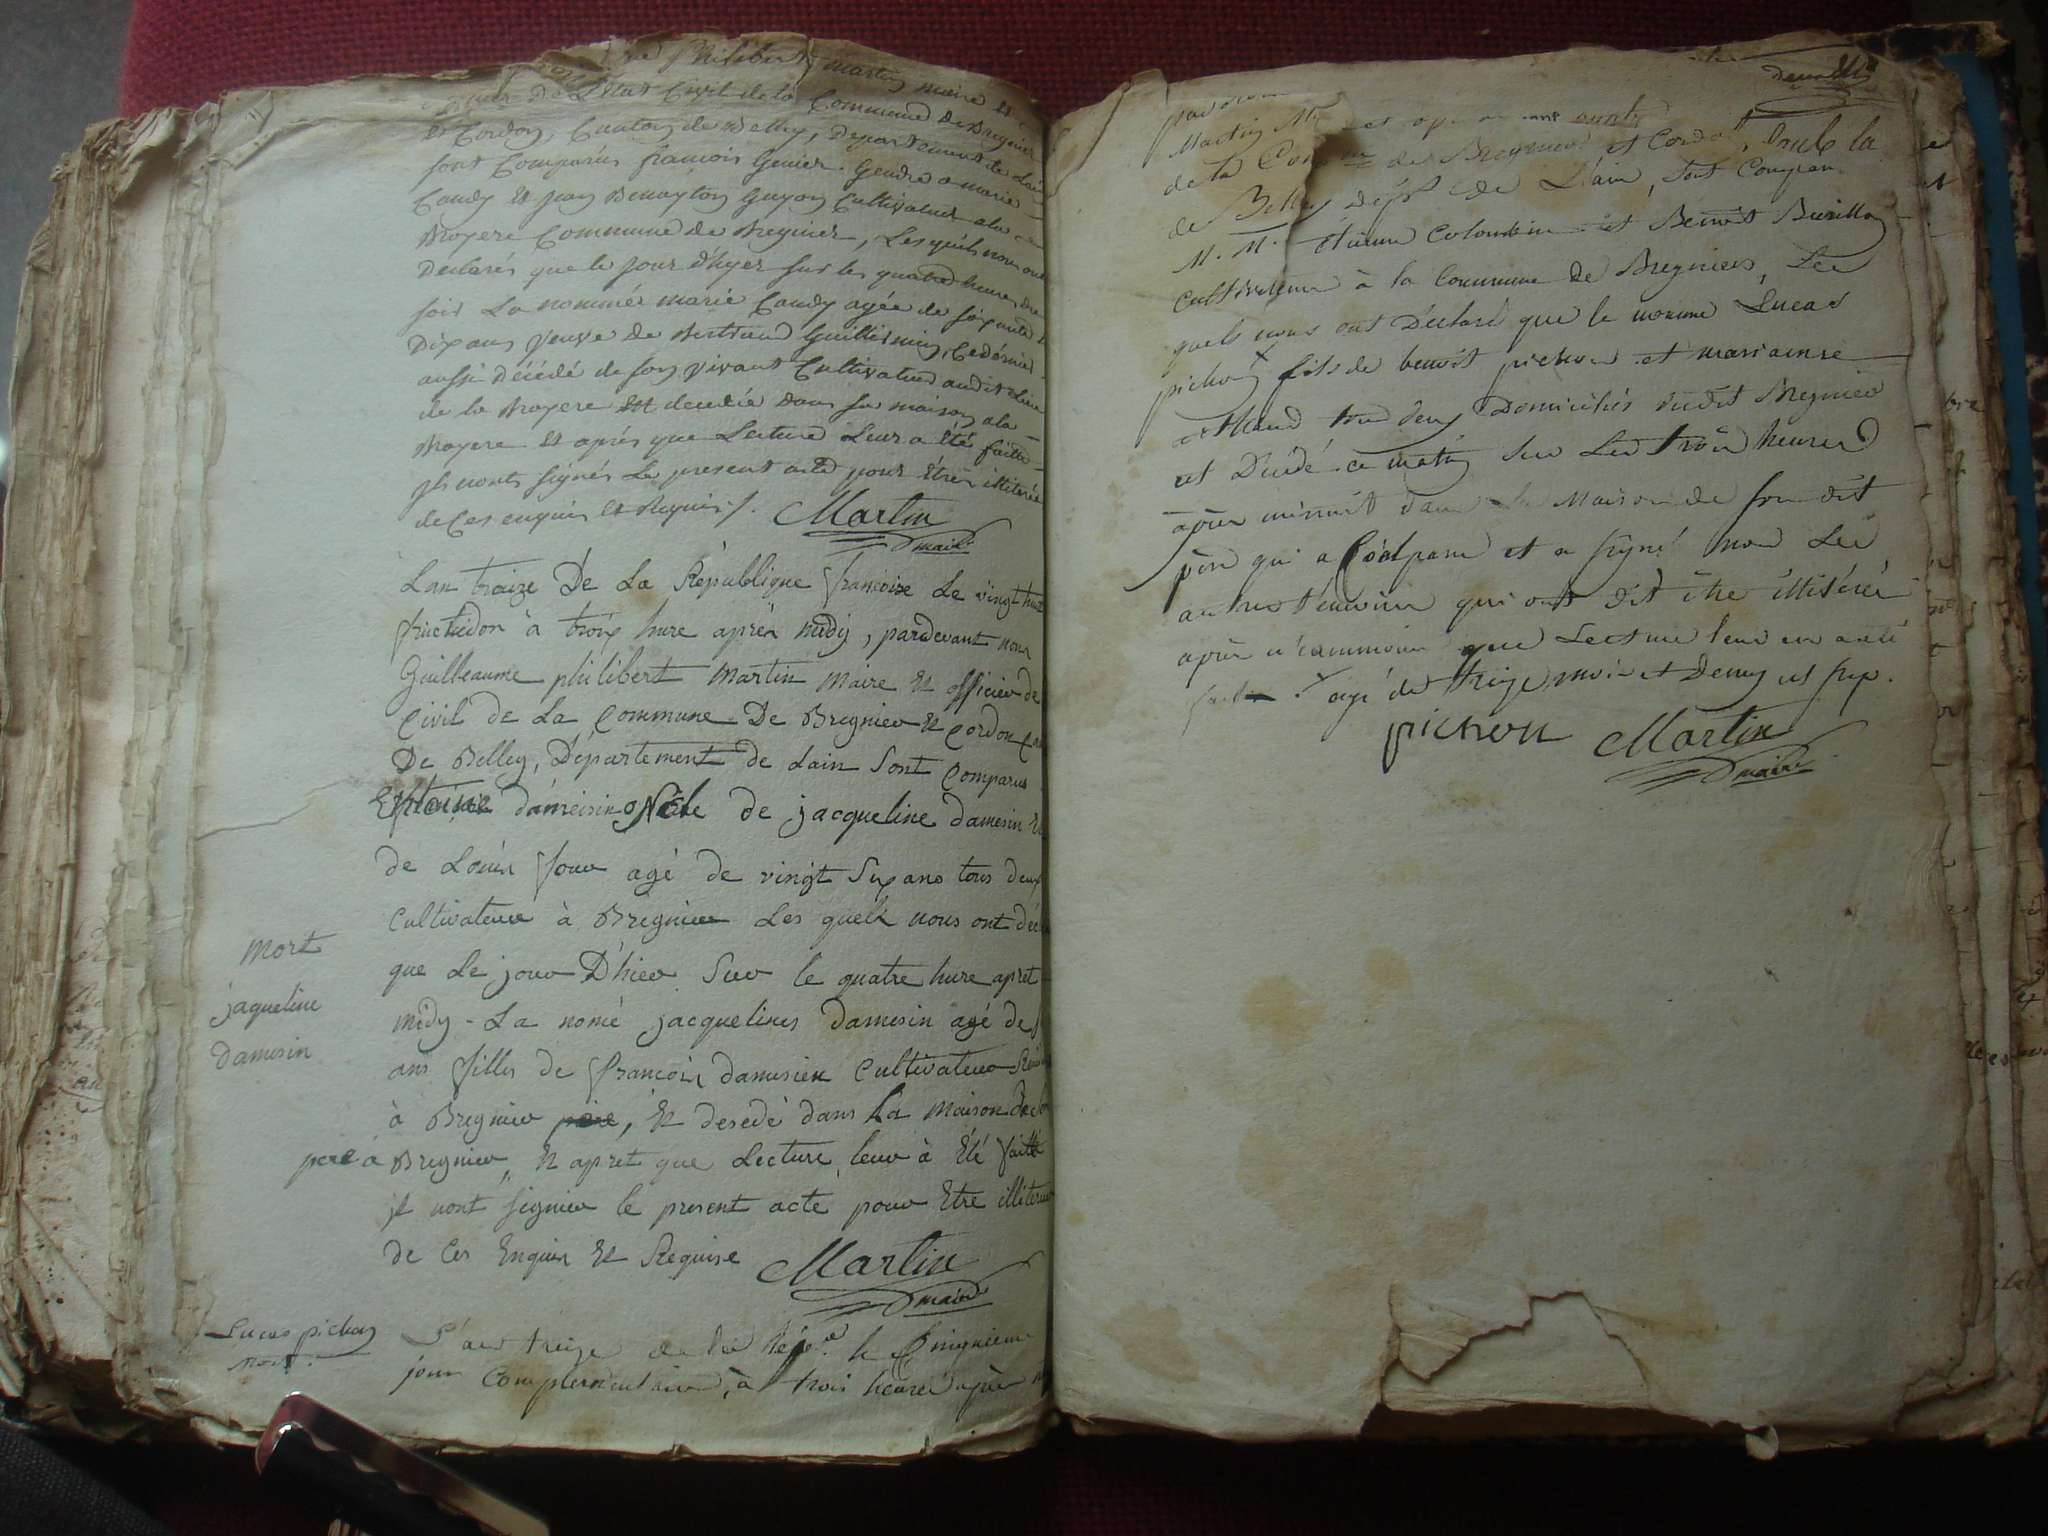 Philibert martin maire et
de L'Etat Civil de la Commune de Bregnier
et Cordon, Canton de Belley, Departement de Lain
sont Comparus francois Genier Gendre a marie
Caudy et jean Benayton Guyon Cultivateur a la
Broyere Commune de Bregnier, Lesquels nous ont
Declarés que le jour d'hyer sur les quatre heures du
soir La nommée marie Caudy agée de soixante
Dix ans veuve de Bertrand Guillermin, Ce dernier
aussi décédé de son vivant Cultivateur audit Lieu
de la Broyere Est decedée dans sa maison a la
Broyere et aprés que Lecture Leur a été faitte
ils nonts signés Le present acte pour Etres illiterés
de Ces enquis et Requis /. Martin
maire
Lan traize De La Republique francoize Le vingt huit
fructidor à troix hure aprèr midy, pardevant nous
Guillaume philibert Martin Maire Et officier de
Civil de La Commune De Bregnier Et Cordon
De Belley, Département de Lain Sont Comparus
dameisin oncle de jacqueline damesin Et
de Louis four agé de vingt Six ans tous deux
Cultivateur à Bregnier Les quels nous ont
que Le jour D'hier Sur le quatre hure apret
midy - La nomé jacquelines damesin agé de
ans filles de francois damesien Cultivateur
à Bregnier pere, Et desedé dans La Maison de
pere à Bregnier, Et apret que Lecture leur à Eté faitte
il nont signier le present acte pour Etre illiterer
de Ces Enquis Et Requise Martin
maire
mort
jaqueline
damesin
Lucas pichon
mort.
L'an treize de la Rép. le Cinquieme
jour Complementaire, à trois heures après
Martin
de la Bregnier et Cordon,
de Belley dépt de L'ain, sont Compar
M. M. étienne Colombin et Benoit Burillon
Cultivateur à la Commune de Bregnier, Les
quels nous ont Déclaré que le nommé Lucas
pichon x fils de benoit pichon et marianne
arthaud tous deux Domiciliés audit Bregnier
est Décédé ce matin sur Les trois heures
après minuit dans la Maison de son dit
père qui a Comparu et a signé non Les
autres témoins qui ont dit être illitérés
après que Lecture leur en a été
faite x agé de treize mois et Demy
pichon Martin
maire